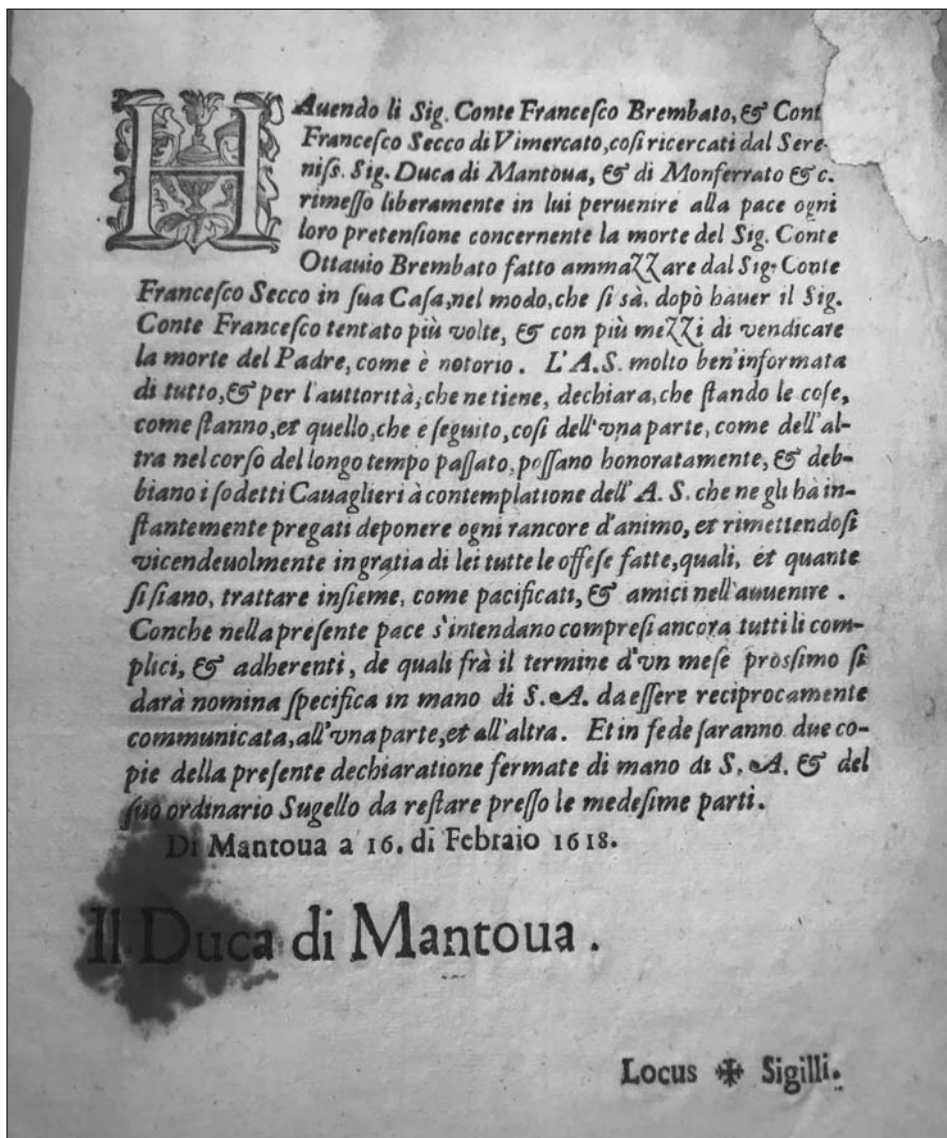 HAuendo li Sig. Conte Franceſco Brembato, & Cont
Franceſco Secco di Vimercato, coſi ricercati dal Sere-
niſs. Sig. Duca di Mantoua, & di Monferrato & c.
rimeſſo liberamente in lui peruenire alla pace ogni
loro pretenſione concernente la morte del Sig. Conte
Ottauio Brembato fatto ammazzare dal Sig. Conte
Franceſco Secco in ſua Caſa, nel modo, che ſi sà, dopò hauer il Sig.
Conte Franceſco tentato più volte, & con più mezzi di vendicare
la morte del Padre, come è notorio. L'A.S. molto ben'informata
di tutto, & per l'auttorità, che ne tiene, dechiara, che ſtando le coſe,
come ſtanno, et quello, che e ſeguito, coſi dell'vna parte, come dell'al-
tra nel corſo del longo tempo paſſato, poſſano honoratamente, & deb-
biano i ſodetti Cauaglieri à contemplatione dell'A. S. che ne gli hà in-
ſtantemente pregati deponere ogni rancore d'animo, et rimettendoſi
vicendeuolmente in gratia di lei tutte le offeſe fatte, quali, et quante
ſi ſiano, trattare inſieme, come pacificati, & amici nell'auuenire.
Conche nella preſente pace s'intendano compreſi ancora tutti li com-
plici, & adherenti, de quali frà il termine d'vn meſe proſſimo ſi
darà nomina ſpecifica in mano di S. A. da eſſere reciprocamente
communicata, all'vna parte, et all'altra. Et in fede ſaranno due co-
pie della preſente dechiaratione fermate di mano di S. A. & del
ſuo ordinario Sugello da reſtare preſſo le medeſime parti.
Di Mantoua a 16. di Febraio 1618.
Il Duca di Mantoua.
Locus ✠ Sigilli.